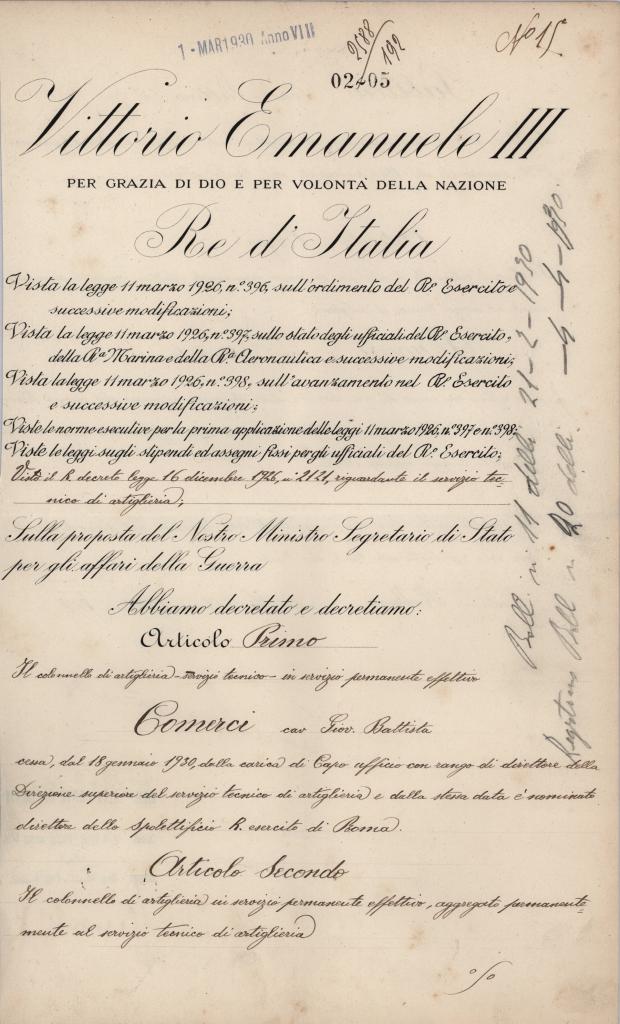 1 - MAR 1930 Anno VIII
2588/192
02405
No 15
Vittorio Emanuele III
PER GRAZIA DI DIO E PER VOLONTÀ DELLA NAZIONE
Re d'Italia
Vista la legge 11 marzo 1926, n.º 396, sull'ordimento del R.º Esercito e
successive modificazioni;
Vista la legge 11 marzo 1926, n.º 397, sullo stato degli ufficiali del R.º Esercito,
della R.ª Marina e della R.ª Aeronautica e successive modificazioni;
Vista la legge 11 marzo 1926, n.º 398, sull'avanzamento nel R.º Esercito
e successive modificazioni;
Viste le norme esecutive per la prima applicazione delle leggi 11 marzo 1926, n.º 397 e n.º 398;
Viste le leggi sugli stipendi ed assegni fissi per gli ufficiali del R.º Esercito;
Visto il R. decreto legge 16 dicembre 1926, n. 2121, riguardante il servizio tec-
nico di artiglieria;
Sulla proposta del Nostro Ministro Segretario di Stato
per gli affari della Guerra
Abbiamo decretato e decretiamo:
Articolo Primo
Il colonnello di artiglieria - servizio tecnico - in servizio permanente effettivo
Comerci cav Giov. Battista
cessa, dal 18 gennaio 1930, dalla carica di Capo ufficio con rango di direttore della
Direzione superiore del servizio tecnico di artiglieria e dalla stessa data è nominato
direttore dello spolettificio R. esercito di Roma.
Articolo Secondo
Il colonnello di artiglieria in servizio permanente effettivo, aggregato permanente-
mente al servizio tecnico di artiglieria
%
Boll. n. 11 della 21-2-1930
Boll n 20 della -4-4-1930.